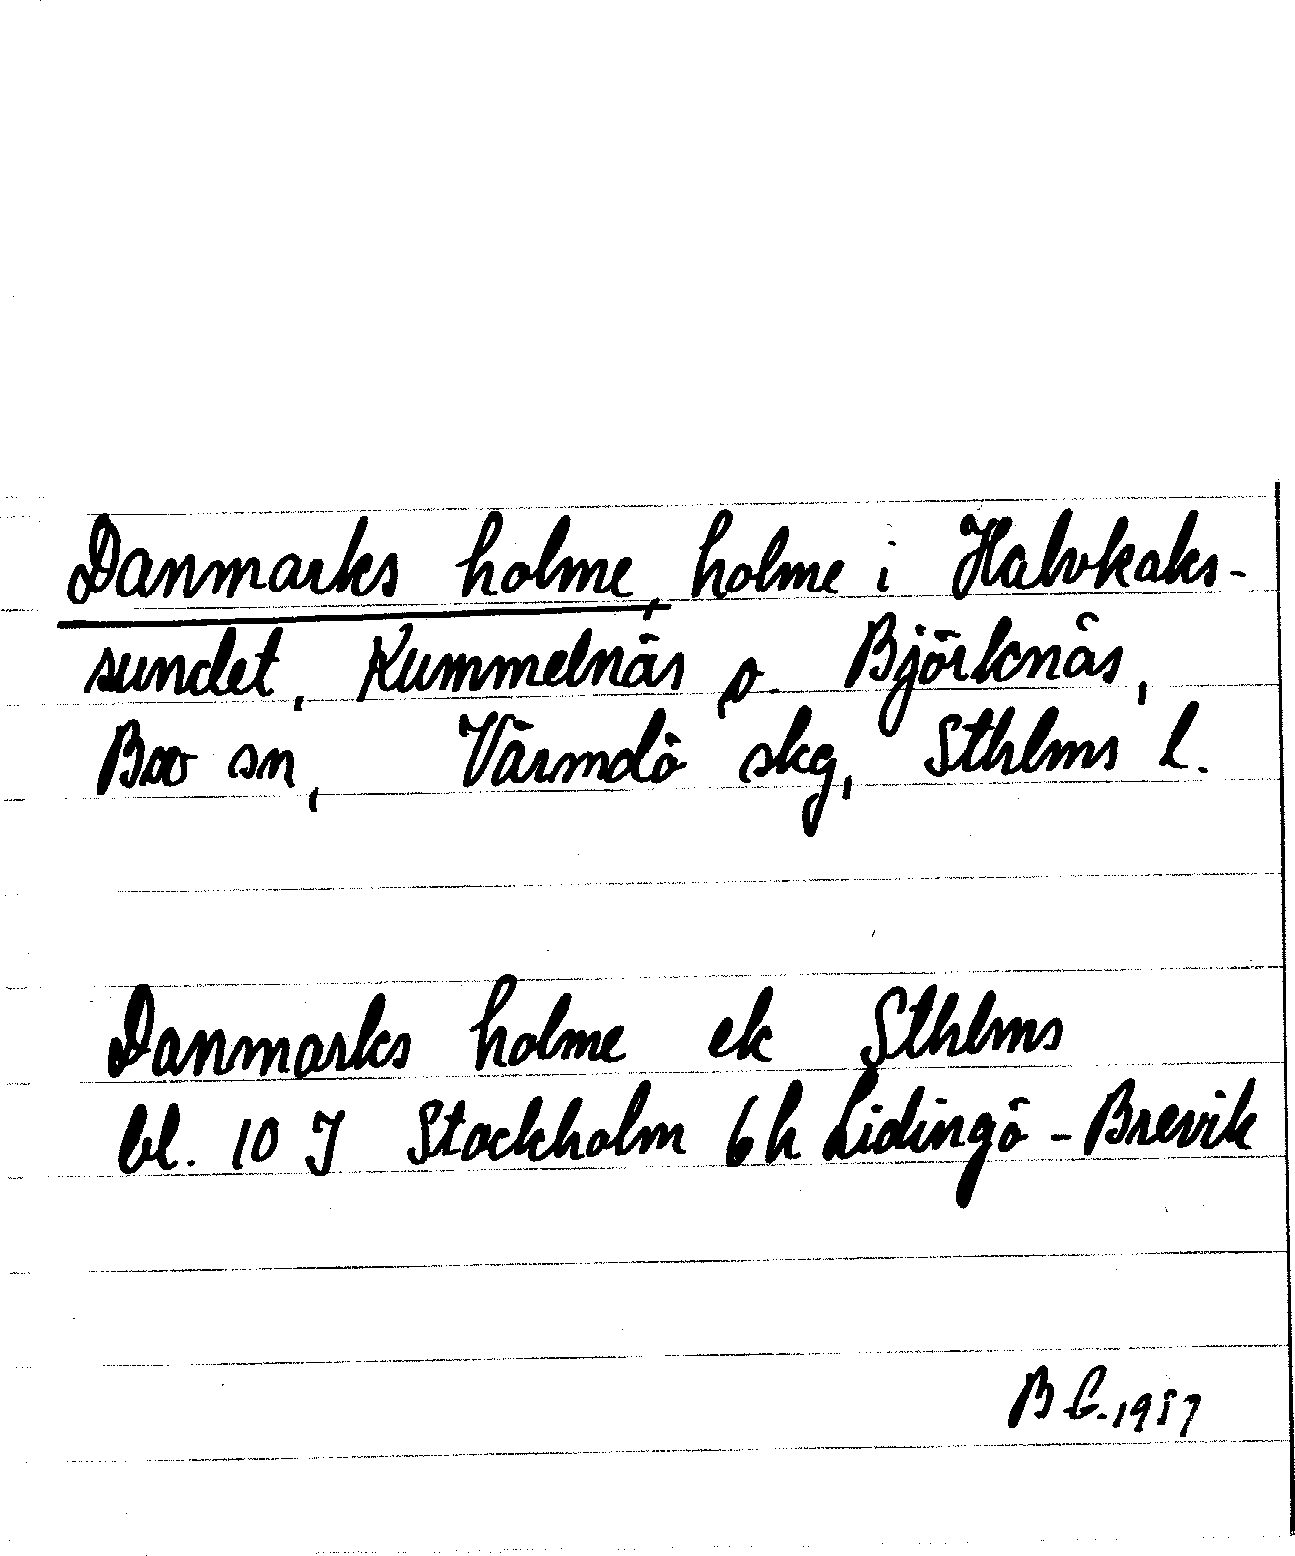 Danmarks holme, holme i Halvkaks-
sundet, Kummelnäs o. Björknäs,
Boo sn, Värmdö skg, Sthlms l.
Danmarks holme ek Sthlms
bl. 10 J Stockholm 6h Lidingö - Brevik
1957